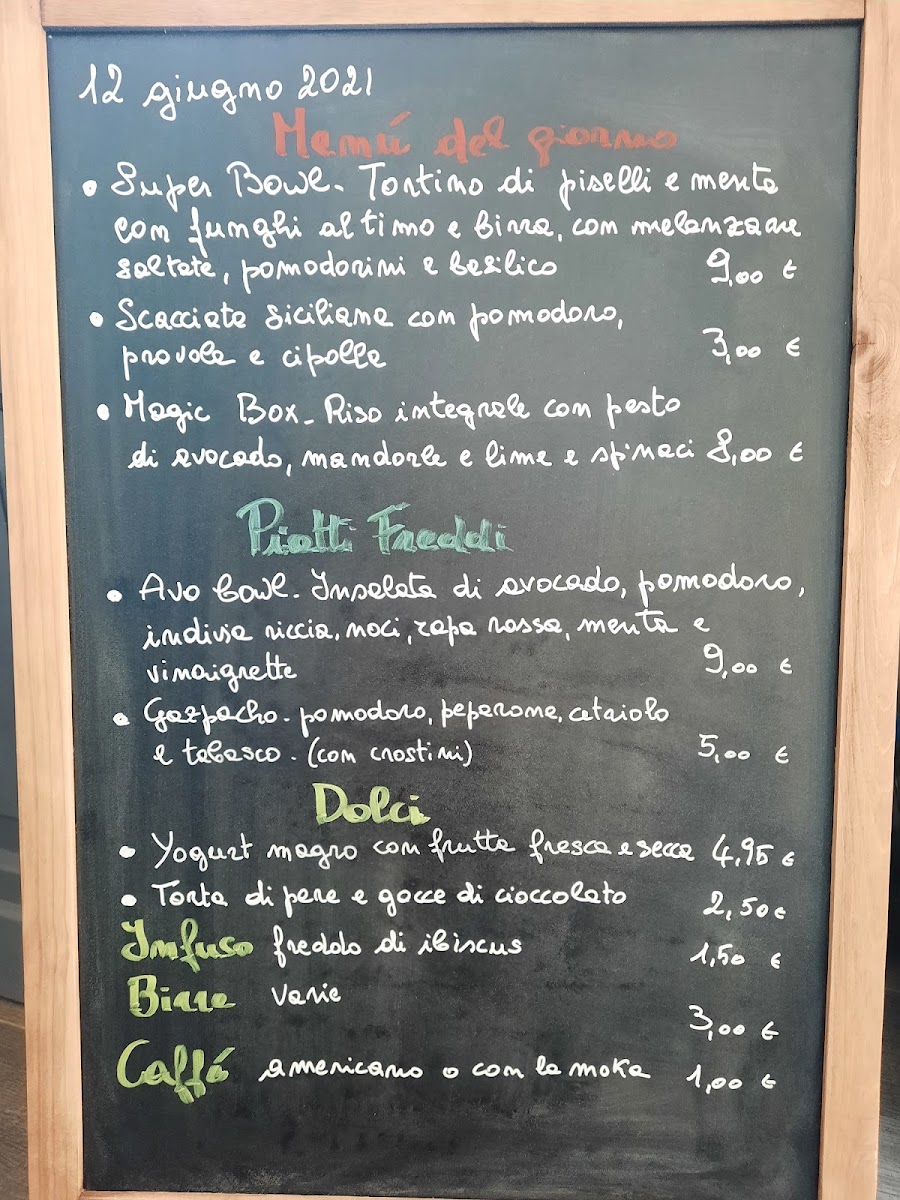 12 giugno 2021
Menú del giorno
• Super Bowl - Tortino di piselli e menta
con funghi al timo e birra, con melanzane
saltate, pomodorini e basilico 9,00 €
• Scacciata siciliana con pomodoro,
provola e cipolla 3,00 €
• Magic Box - Riso integrale con pesto
di avocado, mandorle e lime e spinaci 8,00 €
Piatti Freddi
• Avo bowl - Insalata di avocado, pomodoro,
indivia riccia, noci, rapa rossa, menta e
vinaigrette 9,00 €
• Gazpacho - pomodoro, peperone, cetriolo
e tabasco. (con crostini) 5,00 €
Dolci
• Yogurt magro con frutta fresca e secca 4,95 €
• Torta di pere e gocce di cioccolato 2,50 €
Infuso freddo di ibiscus 1,50 €
Birre varie 3,00 €
Caffé americano o con la moka 1,00 €